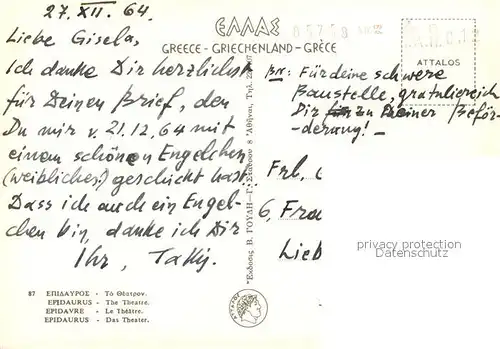 27.XII.64.
Liebe Gisela,
Ich danke Dir herzlichst
für Deinen Brief, den
Du mir v. 21.12.64 mit
einem schönen Engelchen
(weibliches!) geschickt hast.
Dass ich auch ein Engel-
chen bin, danke ich Dir
Ihr,
87 ΕΠΙΔΑΥΡΟΣ - Τὸ Θέατρον.
EPIDAURUS - The Theatre.
EPIDAVRE - Le Théâtre.
EPIDAURUS - Das Theater.
ΕΛΛΑΣ
GREECE - GRIECHENLAND - GRÈCE
Ἐκδοσις Β. ΓΟΥΛΗ - Γ. Σταδίου 8 Ἀθῆναι, Τηλ.
ATTALOS
Für deine schwere
Baustelle, gratuliereich
Dir zu Deiner Beför-
-derung! -
Frl.
6, Fra
Lieb
privacy protection
Datenschutz